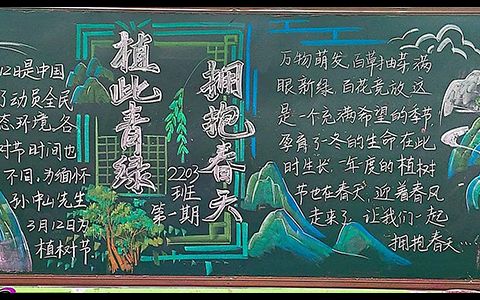 12日是中国
了动员全民
态环境,各
树节时间也
不同,为缅怀
孙中山先生
3月12日为
植树节。
植此青绿
拥抱春天
2203
班
第一期
万物萌发 百草抽芽 满
眼新绿 百花竞放 这
是一个充满希望的季节
孕育了一冬的生命在此
时生长,一年度的植树
节也在春天,迎着春风
走来了,让我们一起
拥抱春天...